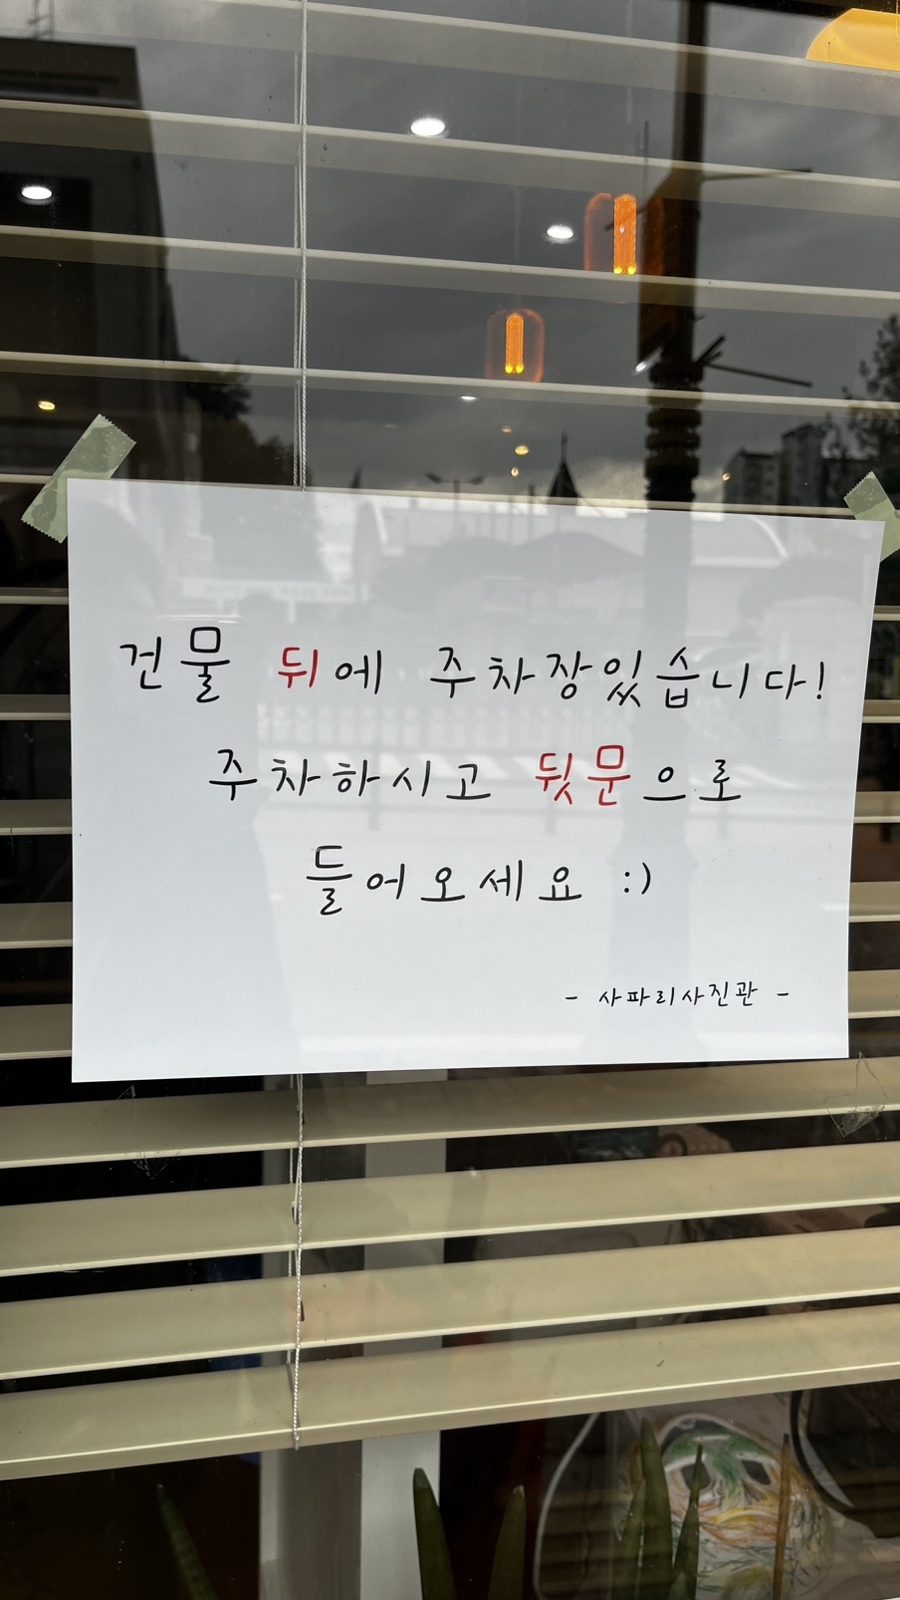 건물 뒤에 주차장있습니다!
주차하시고 뒷문으로
들어오세요 :)
- 사파리사진관 -